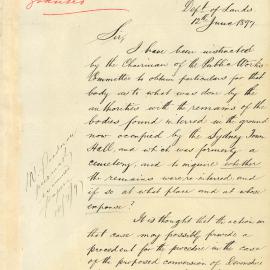 Dept. of Lands
12th June 1897
Sir,
I have been instructed
by the Chairman of the Public Works
Committee to obtain particulars for that
body as to what was done by the
authorities with the remains of the
bodies found interred in the ground
now occupied by the Sydney Town
Hall, and which was formerly a
cemetery, and to inquire whether
the remains were reinterred and
if so at what place and at whose
expense?
It is thought that the action in
that case may possibly provide a
precedent for the procedure in the case
of the proposed conversion of Devonshire